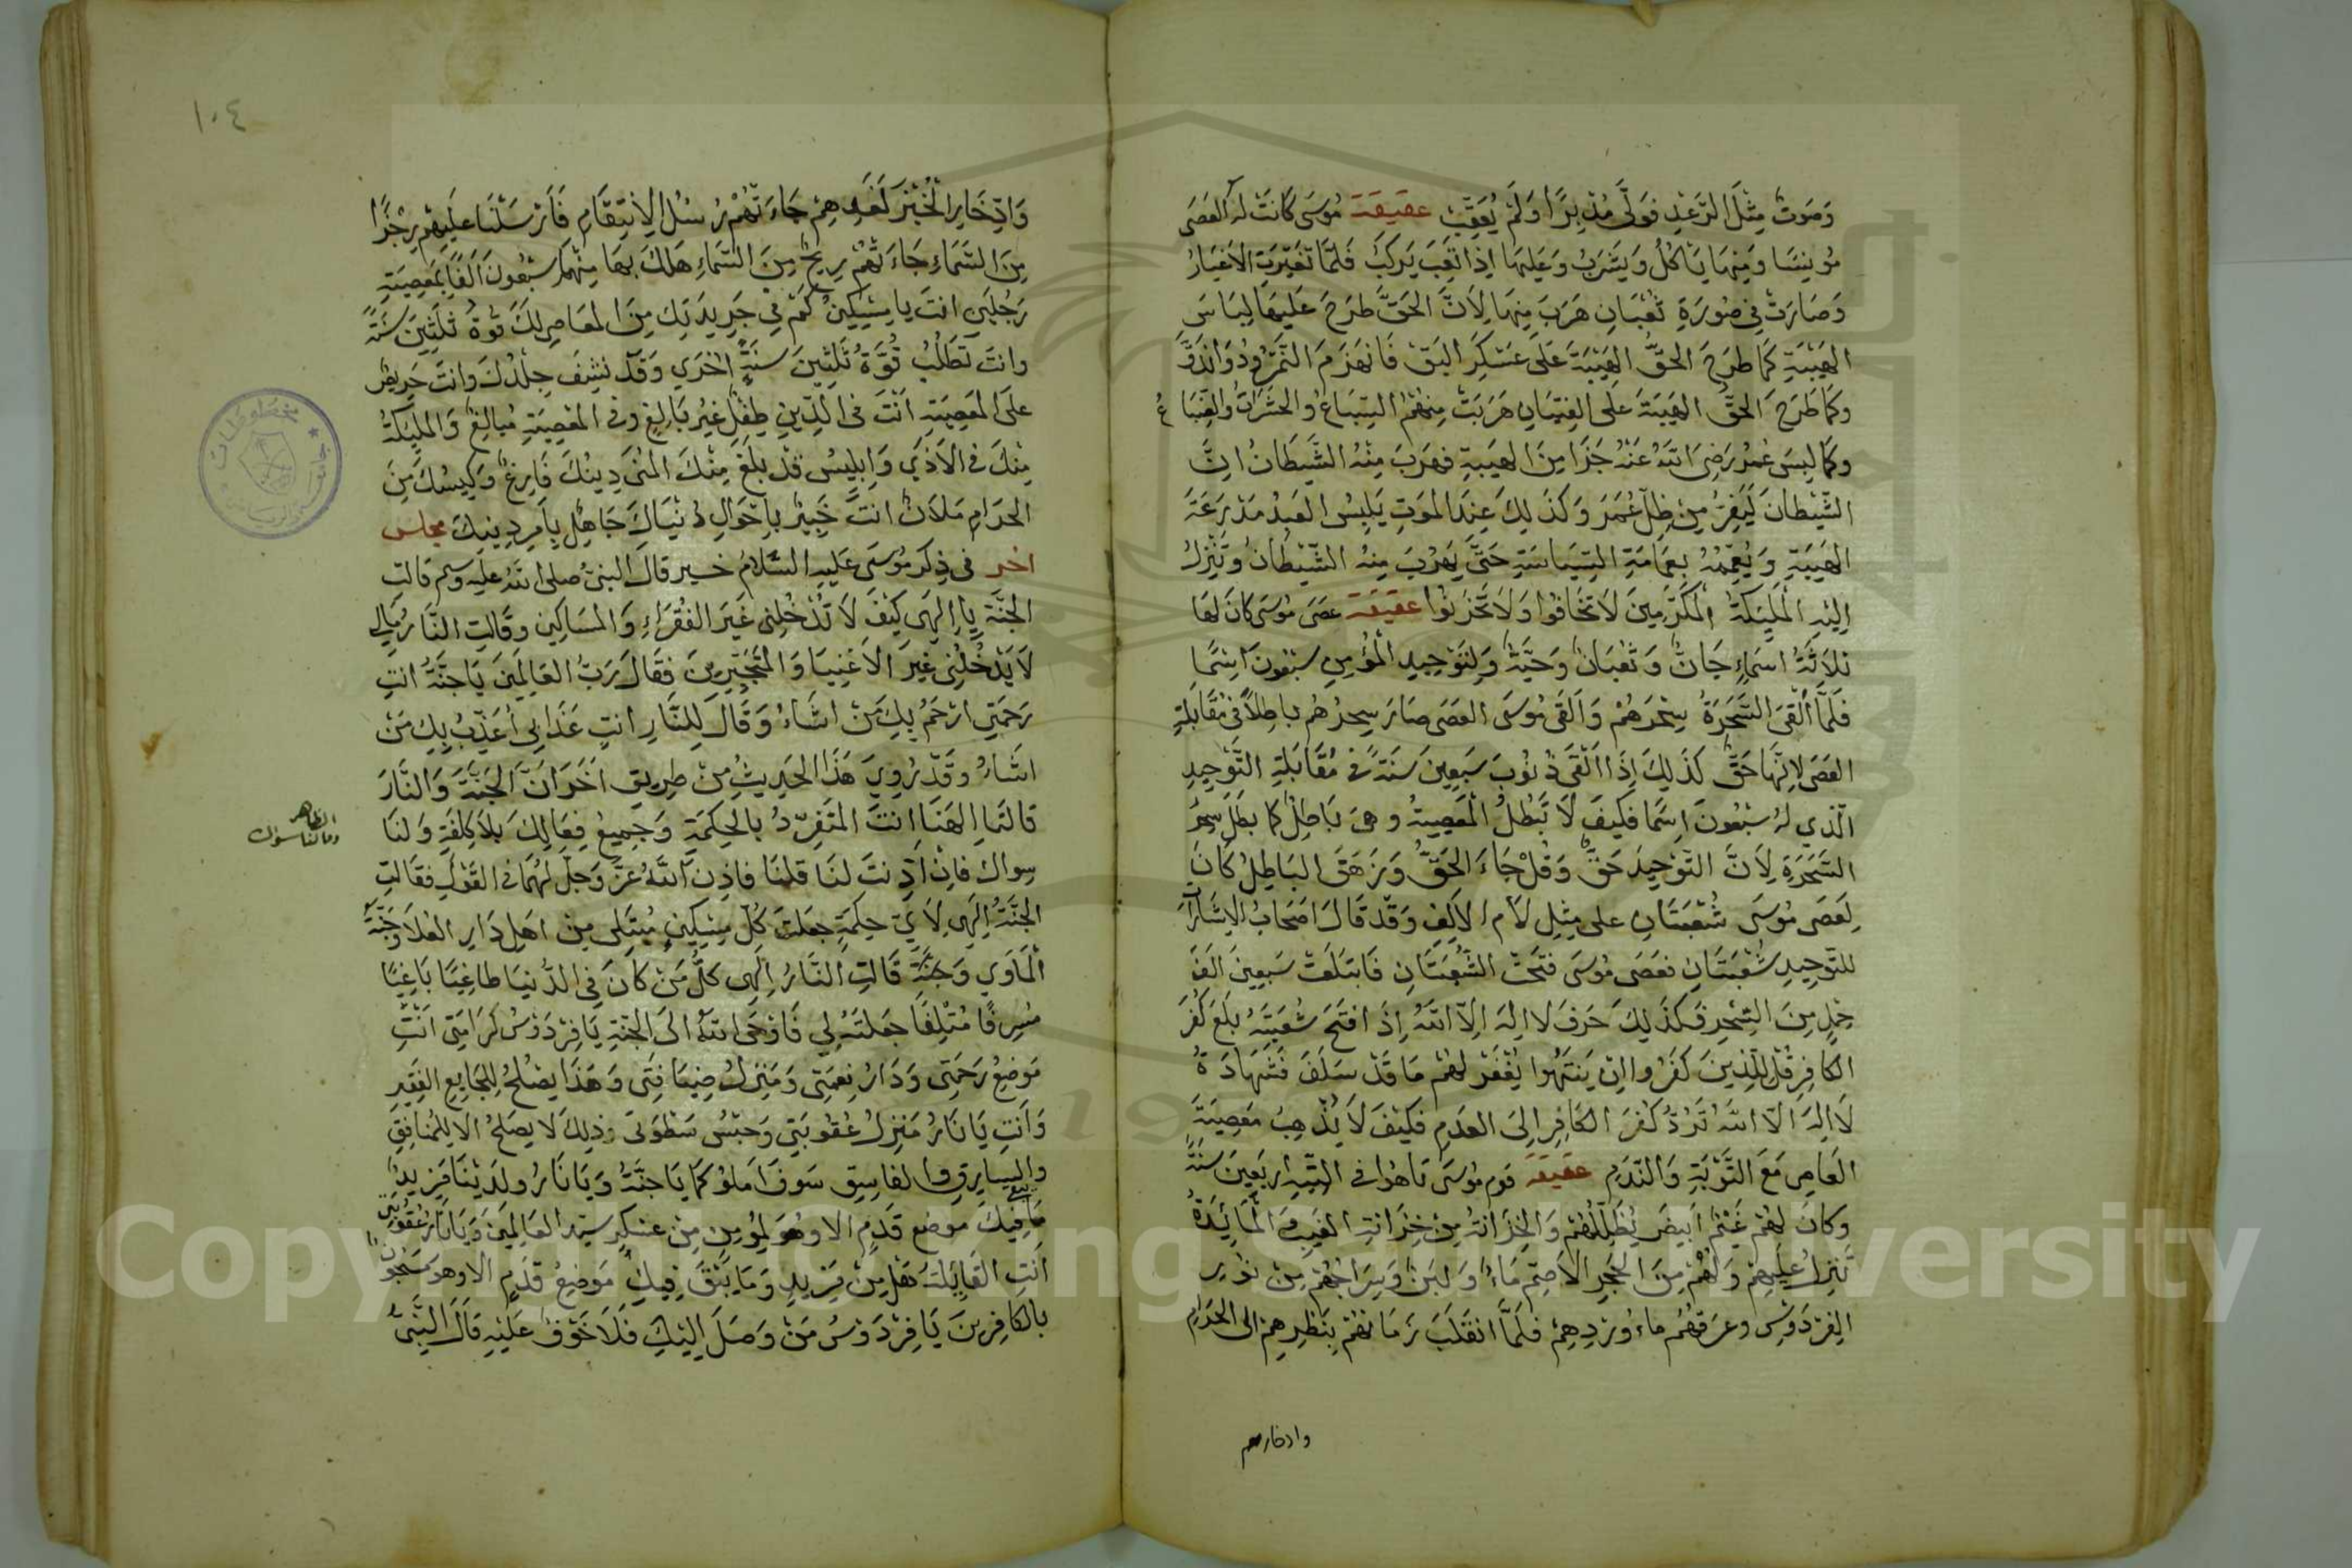 وَصَوتٌ مِثْلَ الرَّعْدِ فَوَلَّى مُدْبِرًا وَلَمْ يُعَقِّبْ عقيقة مُوسَى كَانَتْ لَهُ العَصَى
مُونِسًا وَمِنهَا يَأكُلُ وَيَشْرَبُ وَعَلَيهَا اِذَا تَعِبَ يَركَبُ فَلَمَّا تَغَيَّرَتِ الاَغيَارُ
وَصَارَتْ فِي صُورَةِ ثُعْبَانٍ هَرَبَ مِنهَا لِاَنَّ الحَقَّ طَرَحَ عَلَيهَا لِبَاسَ
الهَيْبَةِ كَمَا طَرَحَ الحَقُّ الهَيْبَةَ عَلَى عَسْكَرِ البَقِّ فَانهَزَمَ النَّمْرُودُ وَانْدَقَّ
وكَمَا طَرَحَ الحَقُّ الهَيبَةَ عَلَى الفِتيَانِ هَرَبَتْ مِنهُمُ السِّبَاعُ والحَشَرَاتُ والضِّبَاعُ
وكَمَا لَبِسَ عُمَرُ رَضِيَ اللهُ عَنْهُ جَزَا مِنَ الهَيبَةِ فهَرَبَ مِنْهُ الشَّيطَانُ اِنَّ
الشَّيْطَانَ لَيَفِرُّ مِنْ ظِلِّ عُمَرَ وَكَذَلِكَ عِندَ المَوتِ يَلبِسُ العَبدُ مَدْرَعَةَ
الهَيبَةِ وَيُعَمِّمُهُ بِعِمَامَةِ السِّيَاسَةِ حَتَّى يَهرُبَ مِنهُ الشَّيْطَانُ وَتَنْزِلُ
اِلَيْهِ المَلَئِكَةُ المُكَرَّمِينَ لَا تَخَافُوا وَلَا تَحْزَنُوا عقيقة عَصَى مُوسَى كَانَ لَهَا
ثَلَاثَةُ اَسْمَاءٍ جَانٌّ وَثُعْبَانٌ وَحَيَّةٌ وَلِتَوْحِيدِ المُؤمِنِ سَبْعُونَ اِسْمًا
فَلَمَّا اَلْقَى السَّحَرَةُ سِحْرَهُمْ وَاَلقَى مُوسَى العَصَى صَارَ سِحرُهُم بَاطِلاً فِي مُقَابَلَةِ
العَصَى لِاَنَّهَا حَقٌّ كَذَلِكَ اِذَا اَلْقَى ذُنُوبَ سَبْعِينَ سَنَةً فِي مُقَابَلَةِ التَّوْحِيدِ
الَّذِي لَهُ سَبْعُونَ اِسمًا فَكَيفَ لَا تَبْطُلُ المَعْصِيةُ وهيَ بَاطِلٌ كما بَطَلَ سِحرُ
السَّحَرَةِ لِاَنَّ التَّوْحِيدَ حَقٌّ وَقُلْ جَاءَ الحَقُّ وَزَهَقَ البَاطِلُ كَانَ
لِعَصَى مُوسَى شُعْبَتَانِ على مِثلِ لَامِ الاَلِفِ وَقَد قَالَ اَصحَابُ الاِشَارَات
للتَّوحِيدِ شُعْبَتَانِ فعَصَى مُوسَى فَتَحَتْ الشُّعبَتَانِ فَابتَلَعَتْ سَبعِينَ اَلفَ
حِملٍ مِنَ السِّحْرِ فَكَذَلِكَ حَرفَ لا اِلَهَ اِلَّا اللهُ اِذَ افتَحَ شُعبَتَيهِ بَلَعَ كُفْرَ
الكَافِرِ قُل لِلَّذِينَ كَفَرُوا اِن يَنتَهُوا يُغْفَرْ لَهُم مَا قَدْ سَلَفَ فَشَهَادَةُ
لَا اِلَهَ اِلَّا اللهُ تَرُدُّ كُفْرَ الكَافِرِ اِلَى العَدَمِ فَكَيْفَ لَا يُذْهِبُ مَعصِيَةَ
العَاصِي مَعَ التَّوْبَةِ وَالنَّدَمِ عقيقة قَوم مُوسَى تَاهُوا فِي التِّيهِ اَربَعِينَ سَنَةً
وكانَ لهُم غَيْمٌ اَبيَضُ يُظَلِّلُهُمْ وَالخِزَانَةُ مِن خِزَانَةِ الغَيبِ المَائِدَةُ
تَنْزِلُ عَلَيهِمْ وَلَهُمْ مِنَ الحَجَرِ الاَصَمِّ مَاءٌ وَلَبَنٌ وَسِرَاجُهُم مِن نُورِ
الفِرْدَوْسِ وعَرَقهُم مَاءُ وَردِهِم فَلَمَّا انقَلَبَ زَمَانُهُم بِنَظَرِهِم الى الحَرَامِ
وادخارهم
١٠٤
وَادِّخَارِ الخُبْزِ لَغَدِهِم جَاءَتْهُمْ رُسُلُ الاِنتِقَامِ فَاَرْسَلْنَا عَلَيهِم رِجْزًا
مِنَ السَّمَاءِ جَاءَتْهُمْ رِيحٌ مِنَ السَّمَاءِ هَلَكَ بِهَا مِنْهُم سَبْعُونَ اَلفًا بِمَعصِيَةِ
رَجُلَينِ اَنتَ يا مِسْكِينُ كَمْ فِي جَرِيدَتِكَ مِنَ المَعَاصِي لَكَ قُوةُ ثَلَثِينَ سَنَةً
وانتَ تَطْلُبُ قُوَّةُ ثَلَثِينَ سَنَةً اُخرَي وَقَد نَشِفَ جِلدُكَ وانتَ حَرِيصٌ
عَلَى المَعصِيَةِ اَنْتَ فِي الدِّينِ طِفلٌ غَيْرُ بَالِغٍ وفي المَعْصِيَةِ مُبَالِغٌ وَالمَلَئِكَةُ
مِنكَ في الاَذَي وَاِبلِيسُ قَدْ بَلَغَ مِنْكَ المُنَى دِينُكَ فَارِغٌ وَكِيسُكَ مِنَ
الحَرَامِ مَلاَنٌ اَنتَ خَبِيرٌ بِاَحْوَالِ دُنيَاكَ جَاهِلٌ بِاَمرِ دِينِكَ مجلس
اخر في ذِكرِ مُوسَى عَلَيهِ السَّلَامُ خبر قَالَ النبيُّ صلى الله عليه وسلم قالت
الجَنَّةُ يَا اِلَهِي كَيْفَ لَا تُدْخِلُنِي غَيرَ الفُقَرَاءِ وَالمَسَاكِينِ وقَالَتِ النَّارُ مَالِي
لَا يَدْخُلُنِي غَيْرَ الاَغنِيَا وَالمُتَجَبِّرِينَ فَقَالَ رَبُّ العَالَمِينَ يَا جَنَّةُ اَنتِ
رَحمَتِي اَرْحَمُ بِكِ مَنْ اَشَاءُ وَقَالَ لِلنَّارِ اَنتِ عَذَابِي اُعَذِّبُ بِكِ مَن
اَشَاءُ وقَدْ رُوِيَ هَذَا الحَدِيثُ مِن طَرِيقٍ اَخَرَ اَنَّ الجَنَّةَ وَالنَّارَ
قَالَتَا اِلهَنَا اَنتَ المُتَفَرِّدُ بالحِكْمَةِ وَجَمِيعُ فِعَالِكَ بِلَا كِلفَةٍ وَلنَا
الظاهر
ومالنا سواك
سِواكَ فَاِنْ اَذِنتَ لَنَا قلنَا فاَذِنَ اللهُ عَزَّ وَجَلَّ لَهُمَا فِي القَوْلِ فقَالَتِ
الجَنَّةُ اِلَهِي لِاَيِّ حِكمَةٍ جَعلتَ كُلَّ مِسكِينٍ مُبتَلَى مِن اَهلِ دَارِ العُلَا وَجَنَّةَ
المَاوَي وَجَنَّةَ قَالَتِ النَّارُ اِلَهِي كلُّ مَنْ كَانَ فِي الدُّنيَا طَاغِيًا بَاغِيًا
مُسرِفًا مُتْلِفًا جَعَلتَهُ لِي فَاَوْحَى اللهُ الَى الجَنَّةِ يَا فِرْدَوْسَ كَرَامَتِي اَنْتِ
مَوضِعُ رَحمَتِي وَدَارُ نِعمَتِي وَمَنزِلُ ضِيَافَتِي وَهَذَا يَصْلُحُ لِلجَايِعِ الفَقِيرِ
وَاَنتِ يَا نَارُ مَنزِلُ عُقُوبَتِي وَحَبْسُ سَطْوَتِي وذَلِكَ لَا يَصلُحُ الا لِلمُنَافِقِ
والسَارِقِ والفاسِقِ سَوفَ اَملَؤكُمَا يَا جَنَّةُ وَيَا نَارُ ولَدَيْنَا مَزِيدٌ
مَافِيكَ مَوضِع قَدَمٍ الا وهُوَ لِمُؤمِنٍ مِن عَسكَرِ سَيّدِ العَالَمِينَ وَيَا نَارُ عُقُوبَتِي
اَنتِ القَايِلَة هَل مِنْ مَزِيدٍ وَمَا يَبْقَ فِيكِ مَوضِعُ قَدَمٍ الا وهو مَسْجُون
بالكَافِرِينَ يَا فِرْدَوْسُ مَنْ وَصَلَ اِلَيْكِ فَلَا خَوْفٌ عَلَيْهِ قَالَ النَّبِيُّ
Copyright © King Saud University